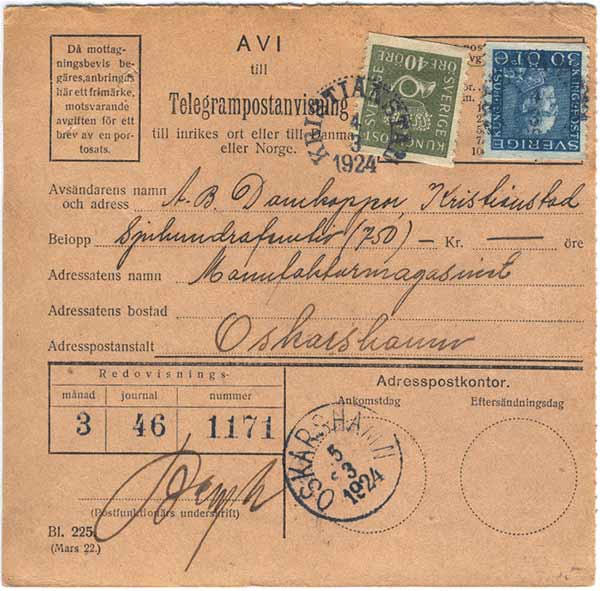 Då mottag-
ningsbevis be-
gäres, anbringas
här ett frimärke,
motsvarande
avgiften för ett
brev av en por-
tosats.
AVI
till
Telegrampostanvisning
till inrikes ort eller till Danma
eller Norge.
ÖRE 40 ÖRE
SVERIGE
KUNGL POST
KRISTIANSTAD
4
3
1924
30 ÖRE
SVERIGE
Avsändarens namn
och adress
A.B. Damkappor, Kristianstad
Belopp Sjuhundrafemtio (750) – Kr. — öre
Adressatens namn Manufakturmagasinet
Adressatens bostad
Adresspostanstalt Oskarshamn
Redovisnings-
månad journal nummer
3 46 1171
Adresspostkontor.
Ankomstdag Eftersändningsdag
OSKARSHAMN
5
3
1924
(Postfunktionärs underskrift)
Bl. 225.
(Mars 22.)